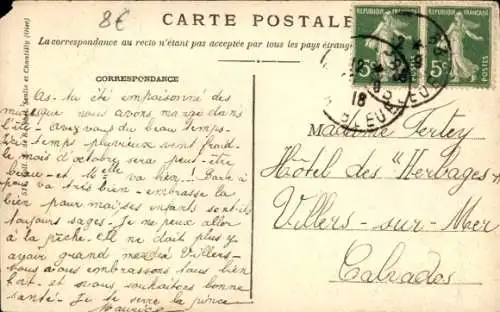 8€
CARTE POSTALE
La correspondance au recto n'étant pas acceptée par tous les pays étrang
CORRESPONDANCE
RÉPUBLIQUE FRANÇAISE
RÉPUBLIQUE FRANÇAISE
5c
5c
POSTES
18
BLEUS
As-tu été empoisonné des
que nous avons mangé dans
l'été - avez vous du beau temps-
temps pluvieux vent froid-
le mois d'octobre sera peut-être
beau - et Melle va bien!! Barbe à
va très bien - embrasse la
bien pour mai ses enfants sont-ils
toujours sages - Je ne peux aller
à la pêche - Il ne doit plus y
avoir grand monde à Villers-
Nous vous embrassons tous bien
fort - et vous souhaitons bonne
santé - Je te serre la pince
Maurice
Madame Fertey
Hôtel des "Herbages"
Villers-sur-Mer
Calvados